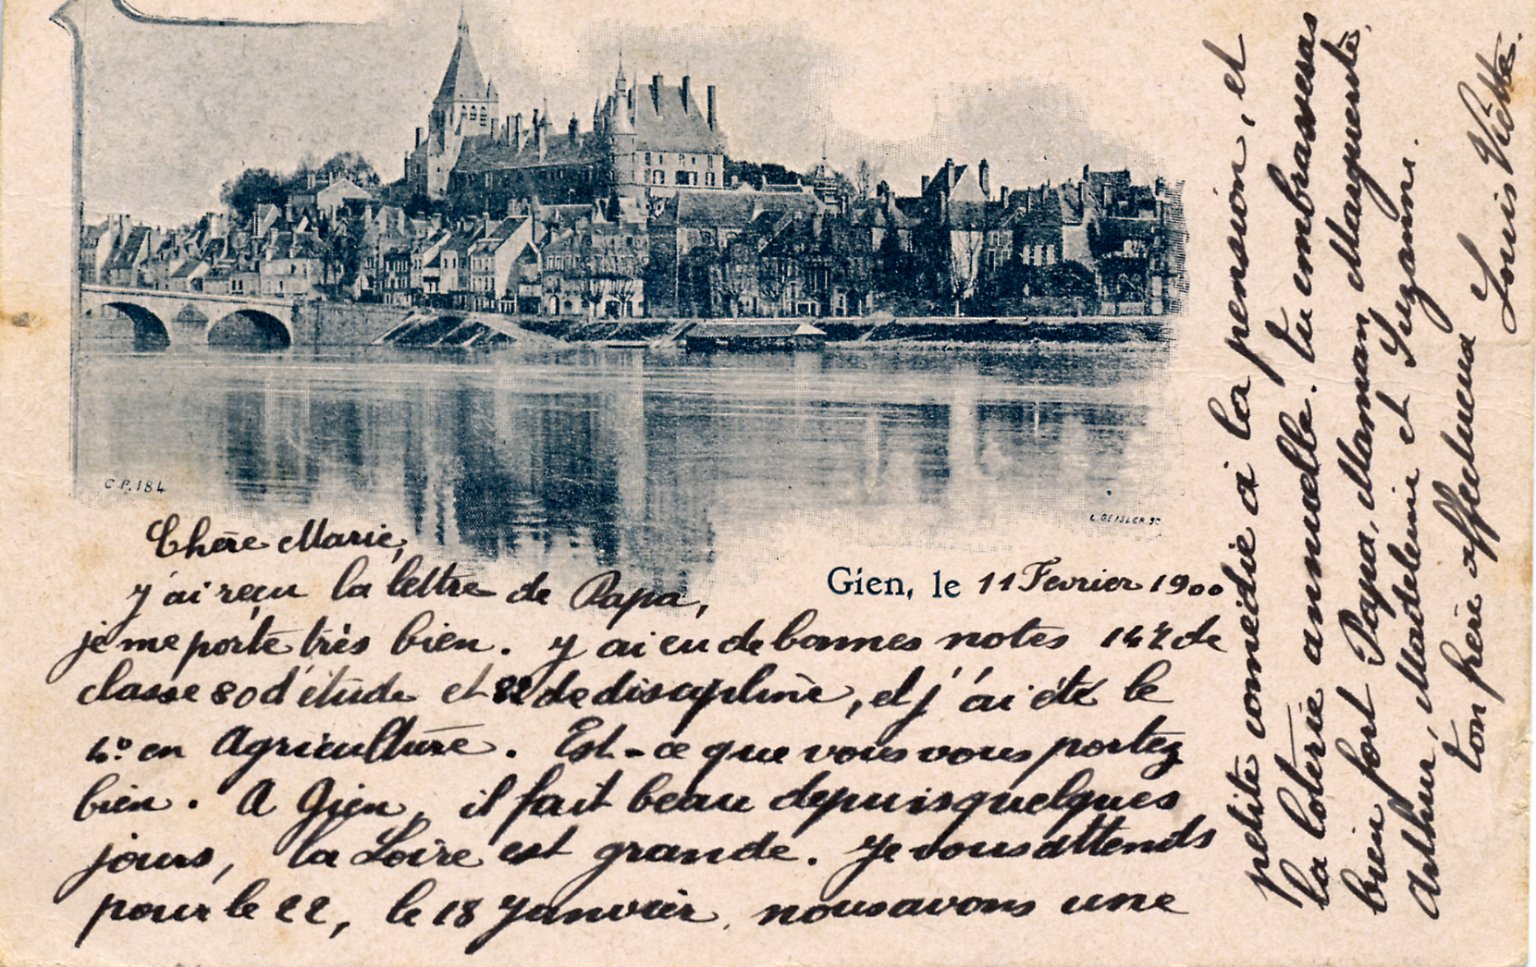 C.P. 184
L. GEISLER 92
Chère Marie,
Gien, le 11 Fevrier 1900
J'ai reçu la lettre de Papa,
je me porte très bien. J'ai eu de bonnes notes 142 de
classe 80 d'étude et 82 de discipline, et j'ai été le
4º en Agriculture. Est-ce que vous vous portez
bien. A Gien, il fait beau depuis quelques
jours, la Loire est grande. Je vous attends
pour le 22, le 18 Janvier, nous avons une
petite comédie à la pension, et
la loterie annuelle. Tu embrasseras
bien fort Papa, Maman, Marguerite,
Arthur, Madeleine et Suzanne.
Ton frère affectueux
Louis